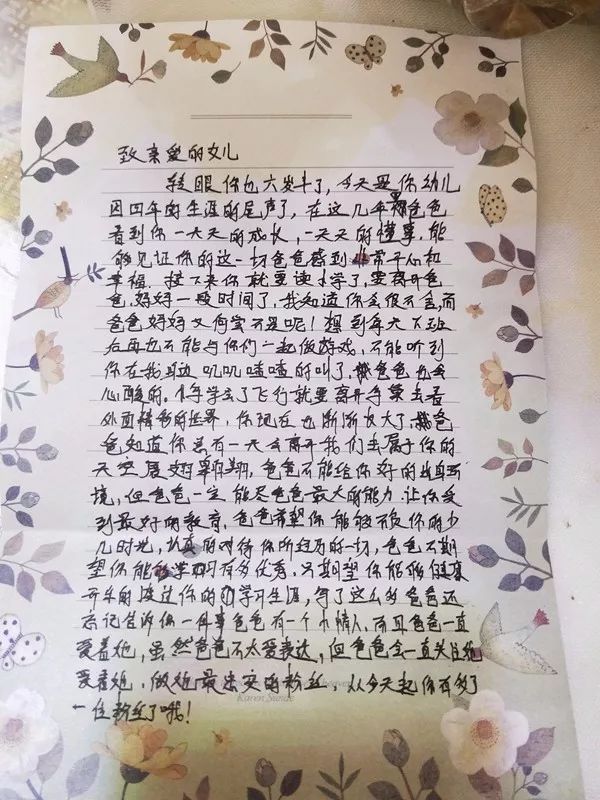 致亲爱的女儿
转眼你也六岁半了，今天是你幼儿
园四年的生涯的尾声了，在这几年里爸爸
看到你一天天的成长，一天天的懂事，能
够见证你的这一切爸爸感到非常开心和
幸福．接下来你就要读小学了，要离开爸
爸，妈妈一段时间了，我知道你会很不舍，而
爸爸妈妈又何尝不是呢！想到每天下班
后再也不能与你们一起做游戏，不能听到
你在我耳边叽叽喳喳的叫了，爸爸也会
心酸的．小鸟学会了飞行就要离开鸟巢去看
外面精彩的世界，你现在也渐渐长大了，爸
爸知道你总有一天会离开我们去属于你的
天空展翅翱翔，爸爸不能给你好的出身环
境，但爸爸一定能尽爸爸最大的能力让你受
到最好的教育，爸爸希望你能够不负你的少
儿时光，认真的对待你所经历的一切，爸爸不期
望你能够学习有多优秀．只期望你能够健康
开车的渡过你的学习生涯，写了这么多爸爸还
忘记告诉你一件事爸爸有一个小情人，而且爸爸一直
爱着她，虽然爸爸不太爱表达，但爸爸会一直关注她
爱着她，做她最忠实的粉丝，从今天起你有多了
一位粉丝了哦！
Karen